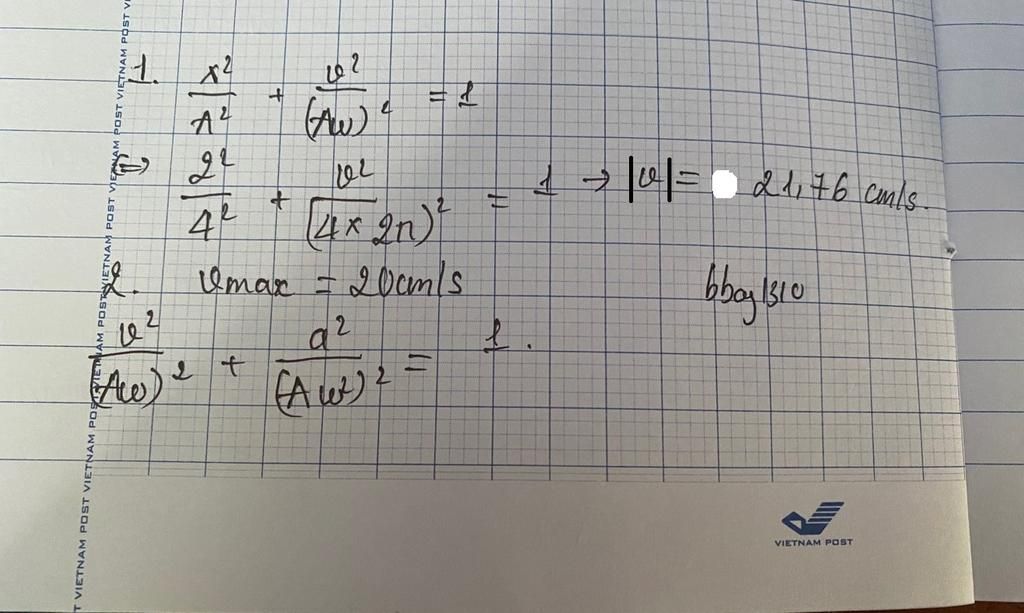 1. x²/A² + v²/(Aω)² = 1
⇔ 2²/4² + v²/(4x2π)² = 1 → |v| = 21,76 cm/s.
2. vmax = 20cm/s
v²/(Aω)² + a²/(Aω²)² = 1.
VIETNAM POST
VIETNAM POST VIETNAM POST VIETNAM POST VIETNAM POST VIETNAM POST